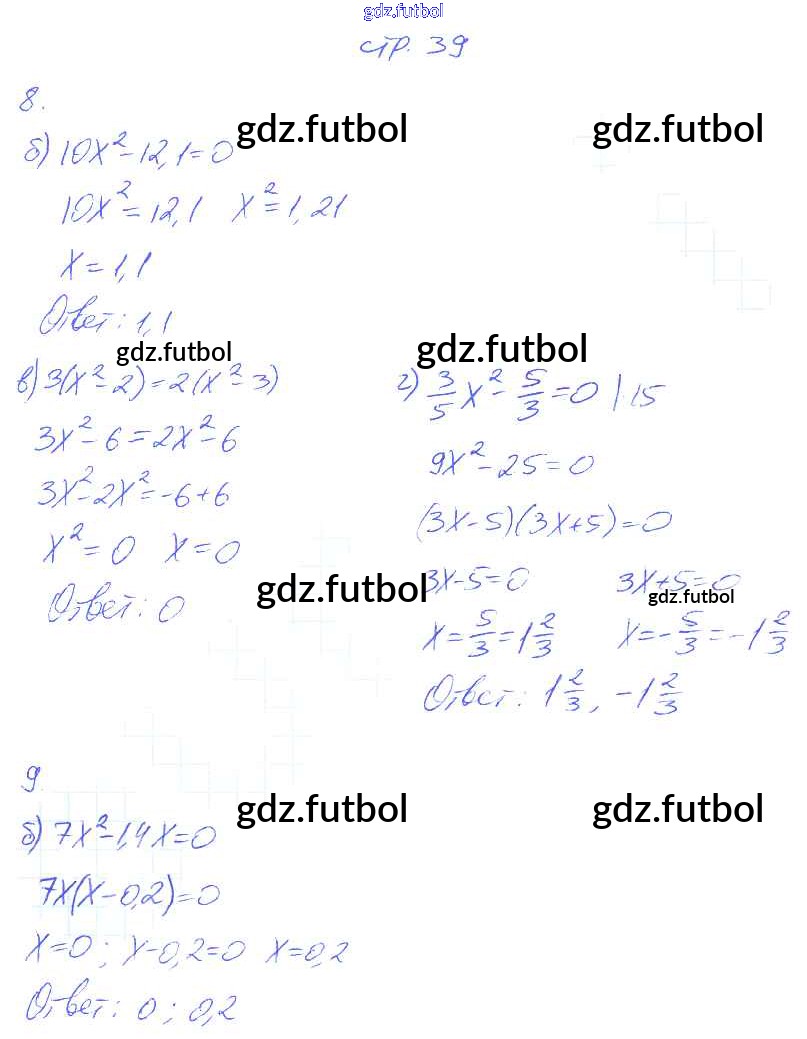 gdz.futbol
стр. 39
8.
б) 10x² - 12,1 = 0
gdz.futbol
gdz.futbol
10x² = 12,1 x² = 1,21
x = 1,1
Ответ: 1,1
gdz.futbol
gdz.futbol
в) 3(x² - 2) = 2(x² - 3)
3x² - 6 = 2x² - 6
3x² - 2x² = -6 + 6
x² = 0 x = 0
Ответ: 0
г) 3/5 x² - 5/3 = 0 | 15
9x² - 25 = 0
(3x - 5)(3x + 5) = 0
gdz.futbol
3x - 5 = 0 3x + 5 = 0
gdz.futbol
x = 5/3 = 1 2/3 x = -5/3 = -1 2/3
Ответ: 1 2/3, -1 2/3
9.
gdz.futbol
gdz.futbol
б) 7x² - 1,4x = 0
7x(x - 0,2) = 0
x = 0; x - 0,2 = 0 x = 0,2
Ответ: 0; 0,2